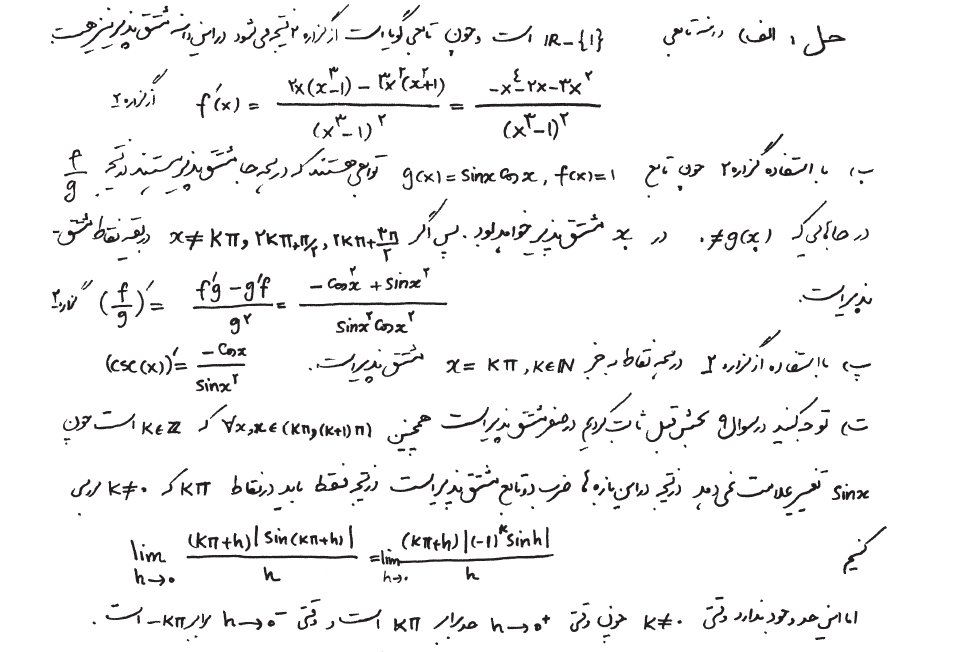 حل: الف) دامنه تابع IR-{1} است و چون تابعی گویاست از گزاره ۲ نتیجه می‌شود در این دامنه مشتق پذیر نیز هست
از گزاره ۲ f'(x) = (۲x(x^۳-1) - ۳x^۲(x^۲+1)) / (x^۳-1)^۲ = (-x^٤-۲x-۳x^۲) / (x^۳-1)^۲
ب) با استفاده گزاره ۲ چون تابع g(x)=sinx cosx , f(x)=1 توابعی هستند که در همه جا مشتق پذیر هستند در نتیجه f/g
در جاهایی که g(x)≠۰ در x مشتق پذیر خواهد بود. پس اگر x≠kπ, ۲kπ+π/۲, ۲kπ+۳π/۲ در بقیه نقاط مشتق-
پذیر است. گزاره ۲ (f/g)' = (f'g - g'f)/g^۲ = (-cosx^۲ + sinx^۲) / (sinx^۲ cosx^۲)
پ) با استفاده از گزاره ۲ در همه نقاط به جز x = kπ , k∈IN مشتق پذیر است. (csc(x))' = -cosx / sinx^۲
ت) توجه کنید در سوال ۹ بخش قبل ثابت کردیم در صفر مشتق پذیر است همچنین ∀x, x∈(kπ,(k+1)π) که k∈Z است چون
sinx تغییر علامت نمی دهد در نتیجه در این بازه ها ضرب دو تابع مشتق پذیر است در نتیجه فقط باید در نقاط kπ که k≠۰ بررسی
کنیم
lim h→۰ (kπ+h)|sin(kπ+h)| / h = lim h→۰ (kπ+h)|(-1)^k sinh| / h
اما این حد وجود ندارد وقتی k≠۰ چون وقتی h→۰^+ حد برابر kπ است و وقتی h→۰^- برابر -kπ است.